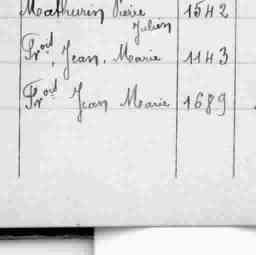 Mathurin Pierre 1542
Julien
Jean, Marie 1143
Jean Marie 1689